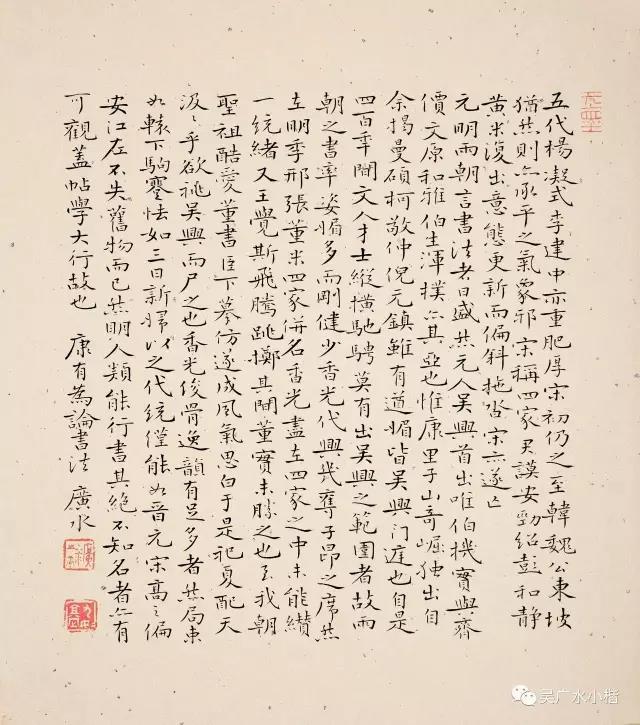 五代楊凝式李建中亦重肥厚宋初仍之至韓魏公東坡
猶然則亦承平之氣象邪宋稱四家君謨安勁紹彭和靜
黃米復出意態更新而偏斜拖沓宋亦遂亡
元明兩朝言書法者日盛然元人吳興首出唯伯機實與齊
價文原和雅伯生渾撲亦其亞也惟康里子山奇崛独出自
余揭曼碩柯敬仲倪元鎮雖有道媚皆吳興门庭也自是
四百年間文人才士縱横馳騁莫有出吳興之範圍者故兩
朝之書率姿媚多而剛健少香光代興幾奪子昂之席然
在明季邢張董米四家併名香光盡在四家之中未能纘
一統緒又王覺斯飛騰跳擲其間董實未勝之也至我朝
聖祖酷愛董書臣下摹仿遂成風氣思白于是祀夏配天
汲汲乎欲祧吳興而尸之也香光俊骨逸韻有足多者然局束
如轅下駒蹇怯如三日新婦以之代統僅能如晉元宋高之偏
安江左不失舊物而已然明人類能行書其絕不知名者亦有
可觀蓋帖學大行故也 康有為論書法 廣水
吴广水小楷